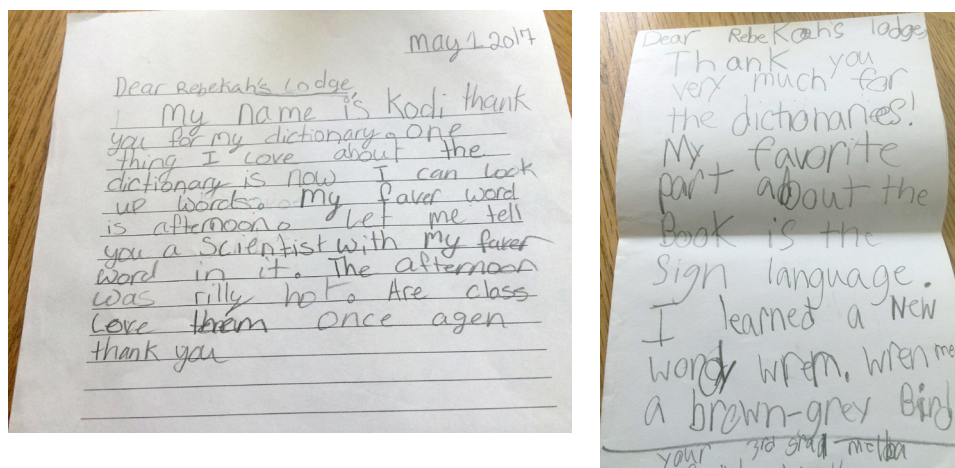 May 1 2017
Dear Rebekah's Lodge,
My name is Kodi thank
you for my dictionary. One
thing I love about the
dictionary is now I can look
up words. My faver word
is afternoon. Let me tell
you a Scientist with my faver
word in it. The afternoon
was rilly hot. Are class
Love them once agen
thank you
Dear Rebekah's lodge,
Thank you
very much for
the dictionaries!
My favorite
part about the
Book is the
Sign language.
I learned a New
word wrem. wren me
a brown-grey Bird
your 3rd grad